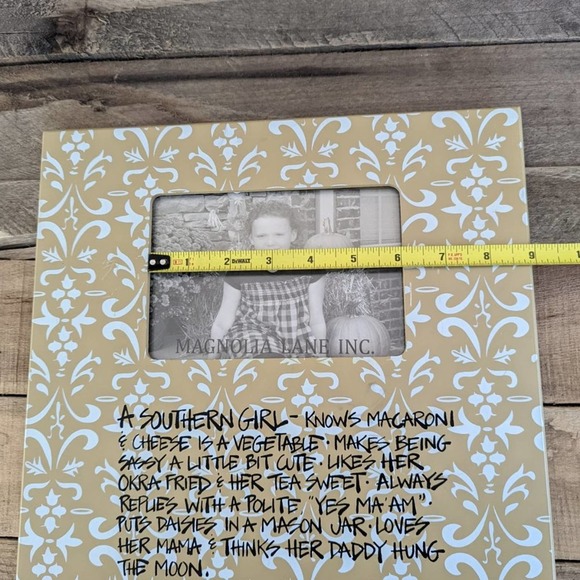 1 2 DEWALT 3 4 5 6 7 8 9 1
MAGNOLIA LANE INC.
A SOUTHERN GIRL - KNOWS MACARONI
& CHEESE IS A VEGETABLE · MAKES BEING
SASSY A LITTLE BIT CUTE · LIKES HER
OKRA FRIED & HER TEA SWEET · ALWAYS
REPLIES WITH A POLITE "YES MA'AM" ·
PUTS DAISIES IN A MASON JAR · LOVES
HER MAMA & THINKS HER DADDY HUNG
THE MOON.